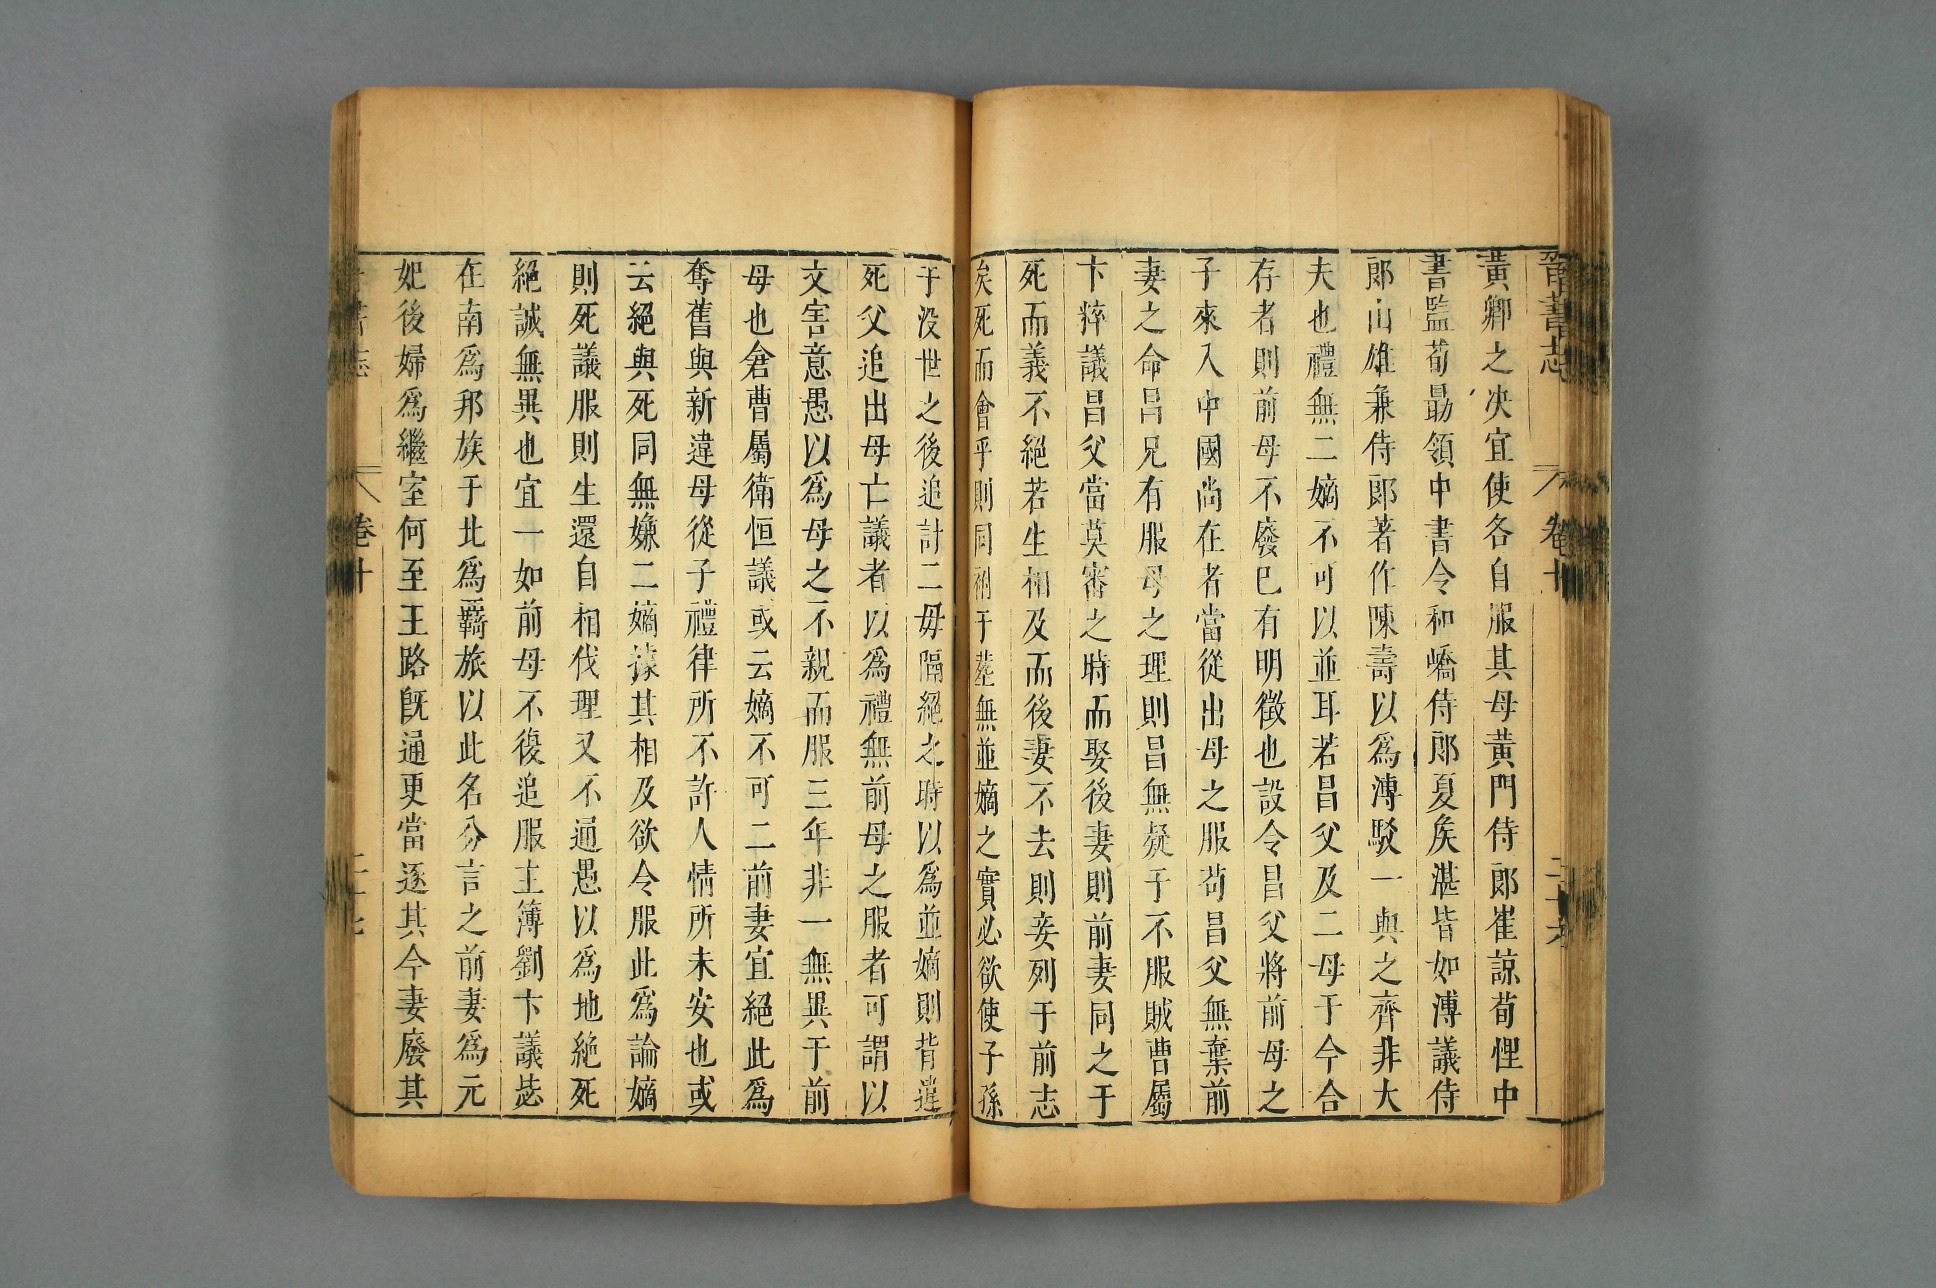 晉書志 卷十 二十六
黃卿之决宜使各自服其母黃門侍郎崔諒荀悝中
書監荀勗領中書令和嶠侍郎夏矦湛皆如溥議侍
郎山雄兼侍郎著作陳壽以爲溥駁一與之齊非大
夫也禮無二嫡不可以並耳若昌父及二母于今合
存者則前母不廢已有明徵也設令昌父將前母之
子來入中國尚在者當從出母之服苟昌父無棄前
妻之命昌兄有服母之理則昌無疑于不服賊曹屬
卞粹議昌父當莫審之時而娶後妻則前妻同之于
死而義不絕若生相及而後妻不去則妾列于前志
矣死而會乎則同祔于葬無並嫡之實必欲使子孫
于没世之後追計二母隔絕之時以爲並嫡則背違
死父追出母亡議者以爲禮無前母之服者可謂以
文害意愚以爲母之不親而服三年非一無異于前
母也倉曹屬衛恒議或云嫡不可二前妻宜絕此爲
奪舊與新違母從子禮律所不許人情所未安也或
云絕與死同無嫌二嫡據其相及欲令服此爲論嫡
則死議服則生還自相伐理又不通愚以爲地絕死
絕誠無異也宜一如前母不復追服主簿劉卞議毖
在南爲邦族于北爲羇旅以此名分言之前妻爲元
妃後婦爲繼室何至王路旣通更當逐其今妻廢其
書志 卷十 二十七